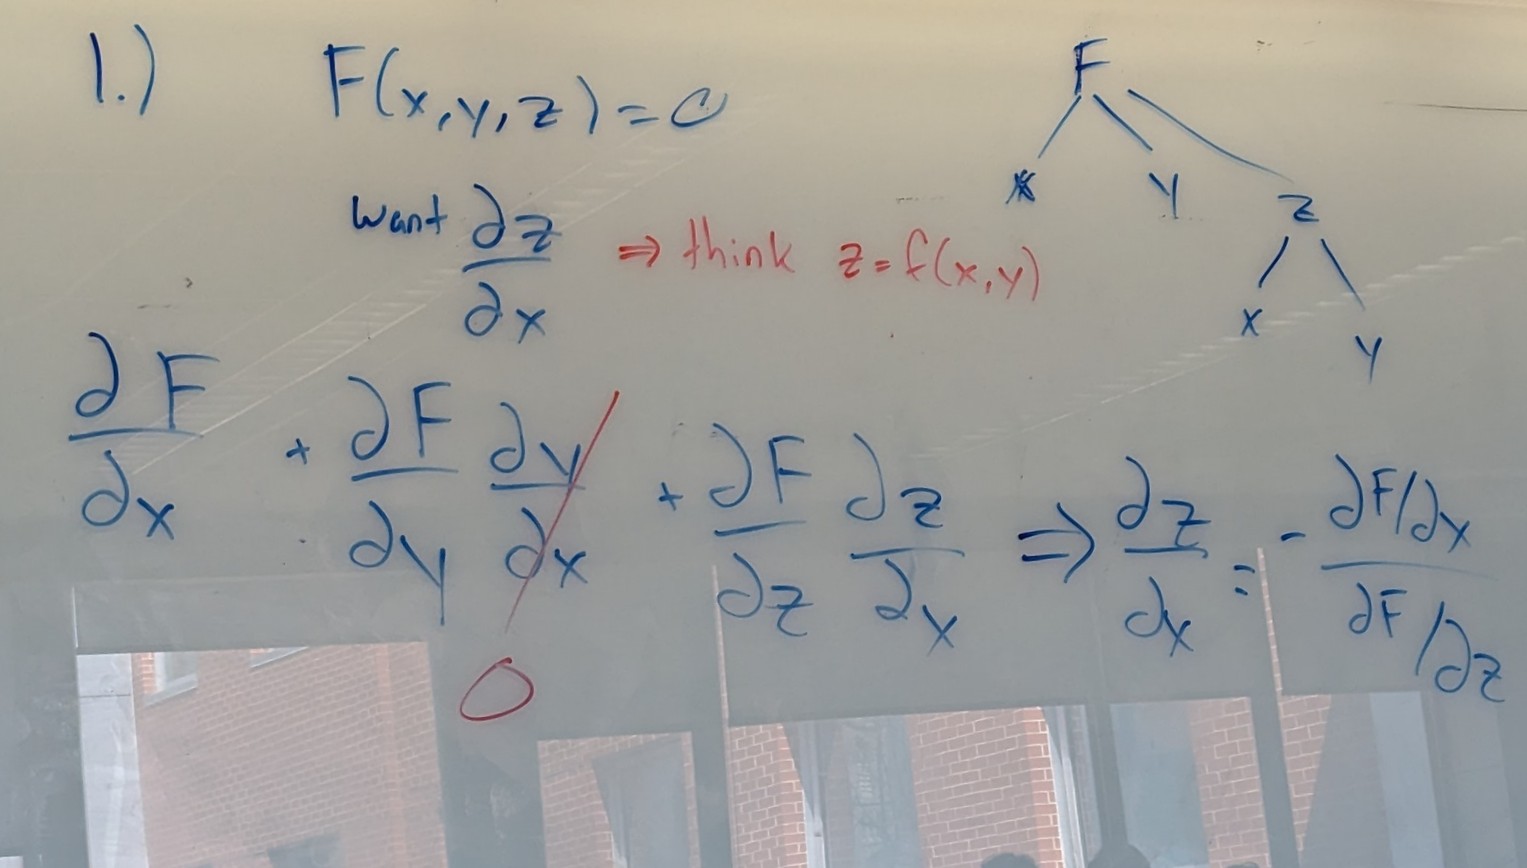 1.) F(x,y,z)=0
want ∂z/∂x ⇒ think z=f(x,y)
F
x y z
x y
∂F/∂x + ∂F/∂y ∂y/∂x + ∂F/∂z ∂z/∂x ⇒ ∂z/∂x = - (∂F/∂x)/(∂F/∂z)
0